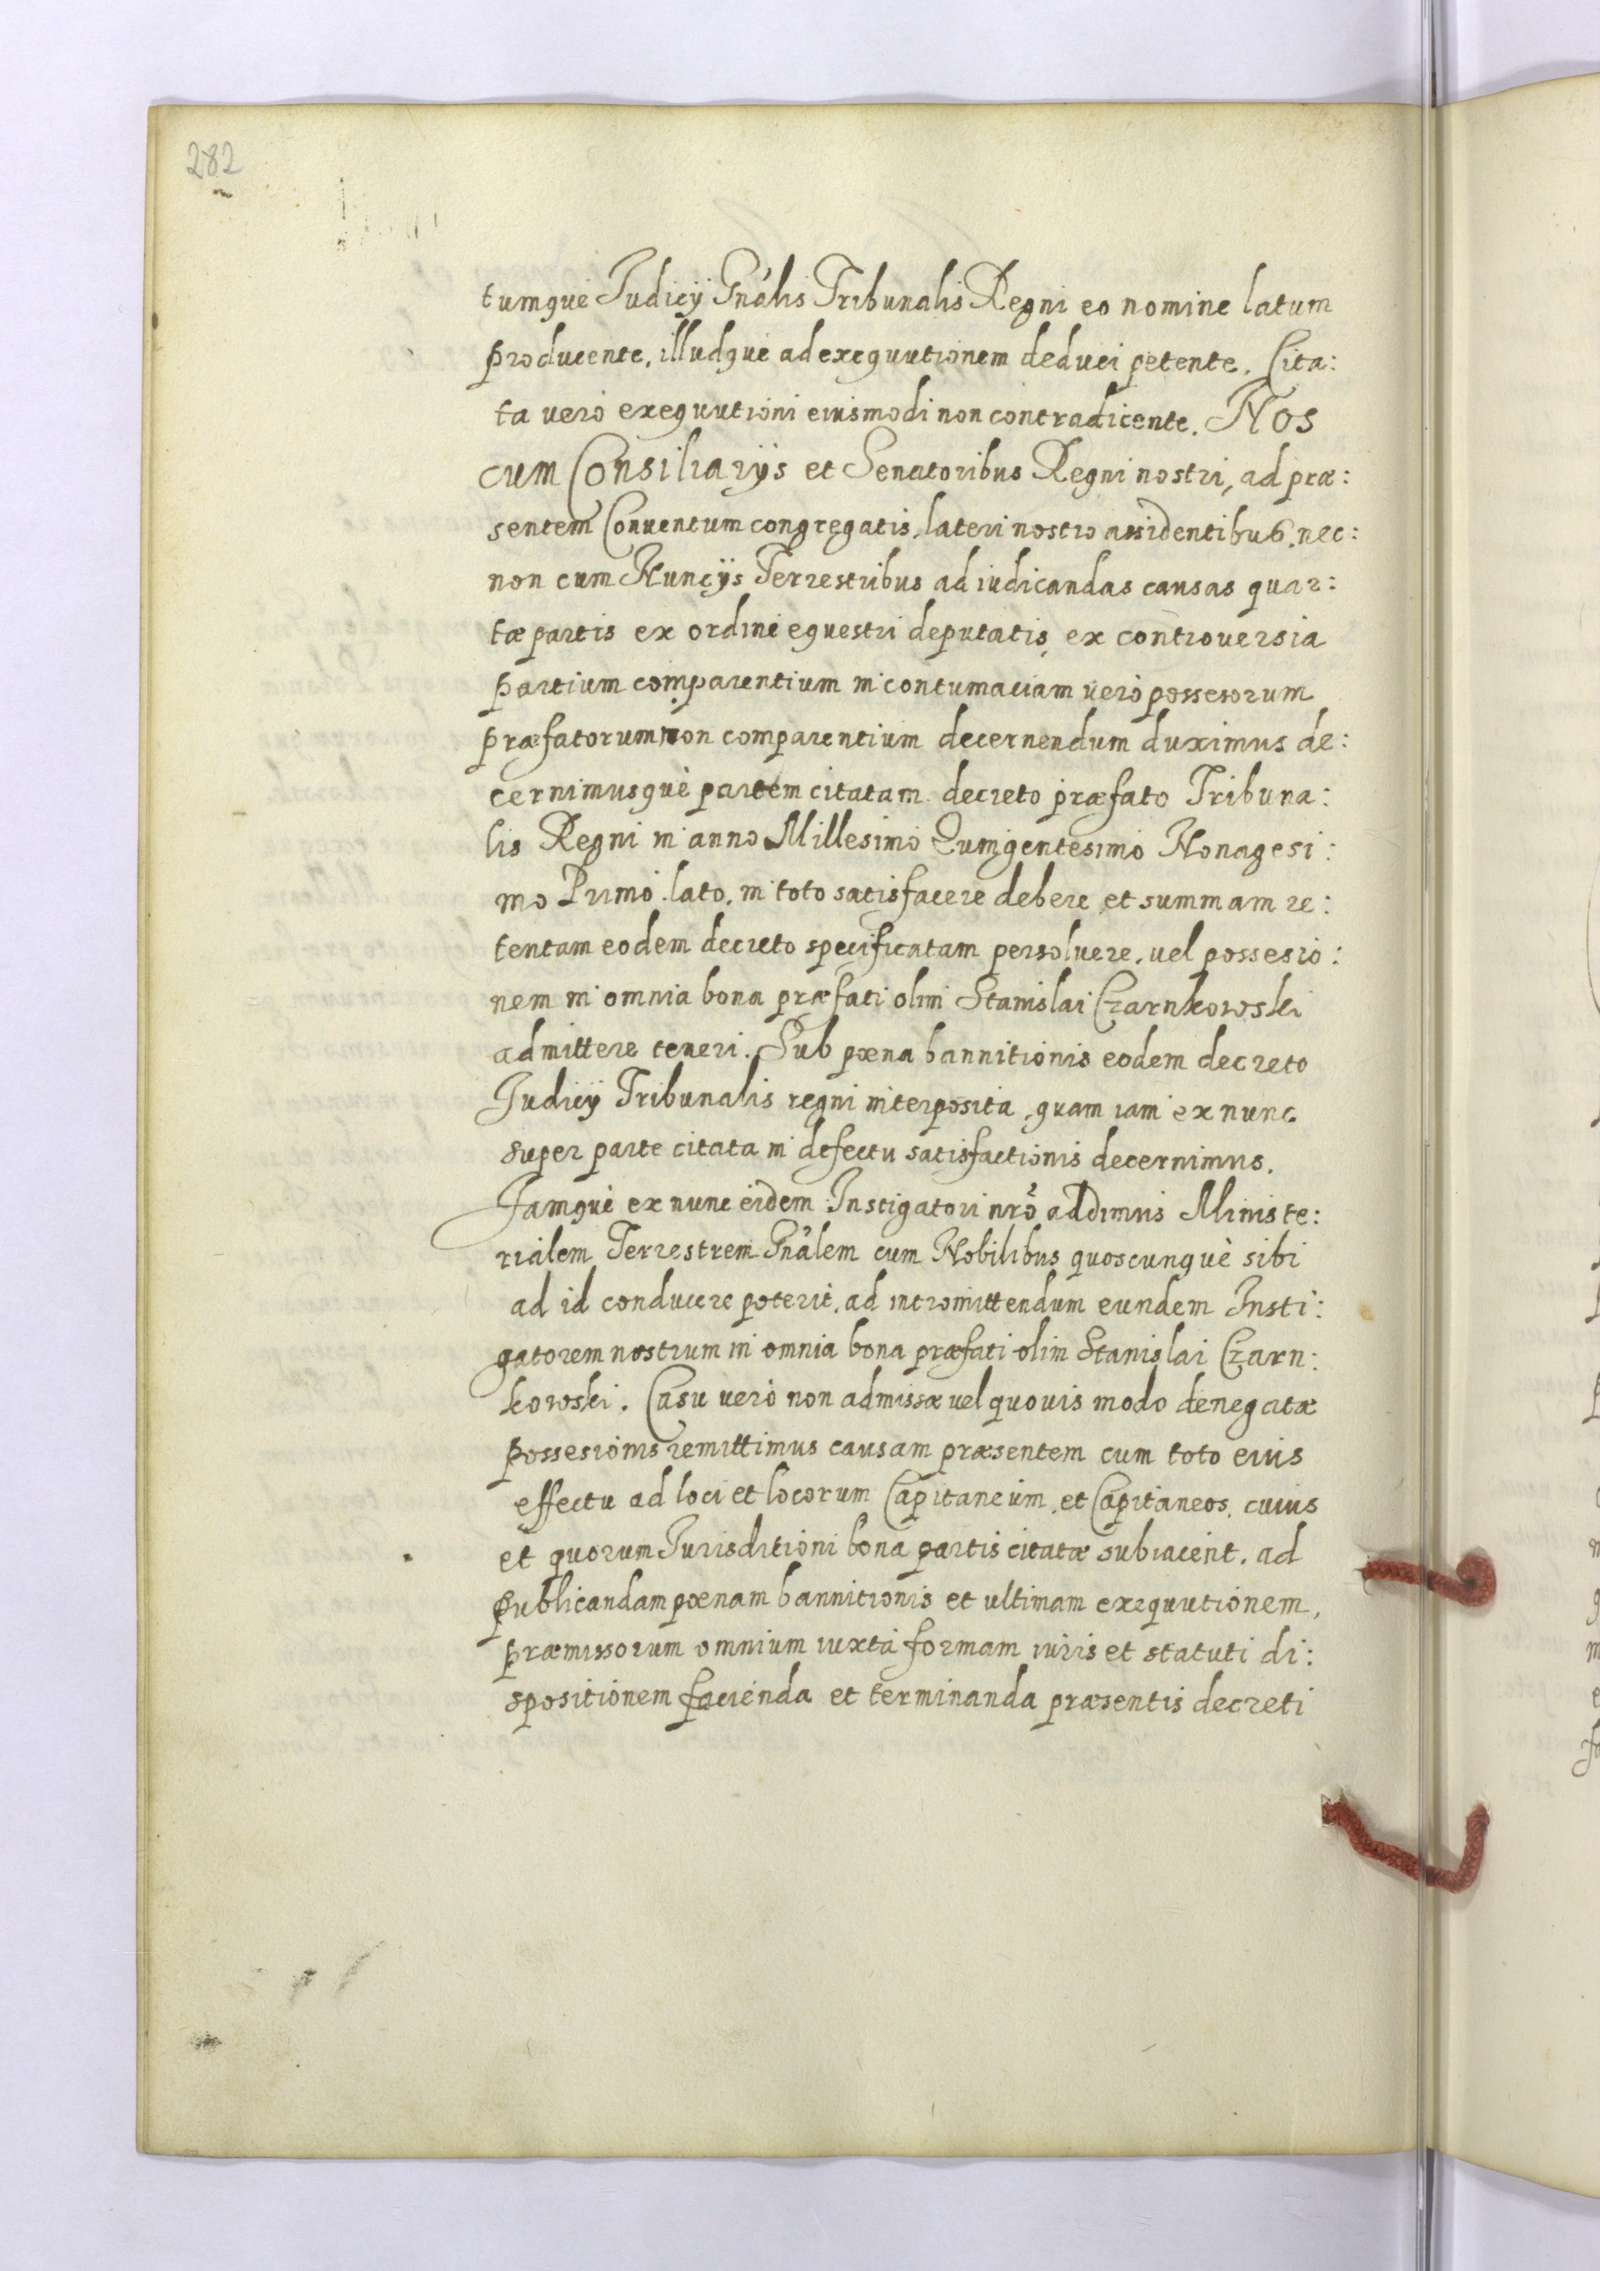 282
tumque Judicÿ Gńalis Tribunalis Regni eo nomine latum
producente, illudque ad exequutionem deduci petente. Cita:
ta vero exequutioni eiusmodi non contradicente. Nos
cum Consiliarÿs et Senatoribus Regni nostri, ad præ:
sentem Conuentum congregatis, lateri nostro assidentibus, nec:
non cum Nuncÿs Terrestribus ad iudicandas causas quar:
tæ partis ex ordine equestri deputatis, ex controuersia
partium comparentium in contumaciam vero possesorum
præfatorum non comparentium decernendum duximus de:
cernimusquè partem citatam decreto præfato Tribuna:
lis Regni in anno Millesimo Quingentesimo Nonagesi:
mo Primo lato, in toto satisfacere debere et summam re:
tentam eodem decreto specificatam persoluere, uel possesio:
nem in omnia bona præfati olim Stanislai Czarnkowski
admittere teneri. Sub pœna bannitionis eodem decreto
Judicÿ Tribunalis regni interposita, quam iam ex nunc
super parte citata in defectu satisfactionis decernimus.
Jamquè ex nunc eidem Instigatori nrõ addimus Ministe:
rialem Terrestrem Gńalem cum Nobilibus quoscunquè sibi
ad id conducere poterit, ad intromittendum eundem Insti:
gatorem nostrum in omnia bona præfati olim Stanislai Czarn:
kowski. Casu verò non admissæ vel quouis modo denegatæ
possesionis remittimus causam præsentem cum toto eius
effectu ad loci et locorum Capitaneum, et Capitaneos, cuius
et quorum Jurisditioni bona partis citatæ subiacent, ad
publicandam pœnam bannitionis et ultimam exequutionem,
præmissorum omnium iuxta formam iuris et statuti di:
spositionem facienda et terminanda præsentis decreti